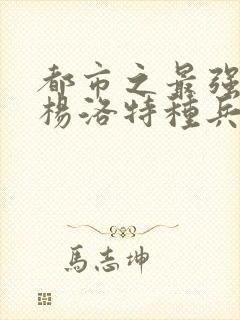 都市之最強
楊洛特種兵
馬志坤